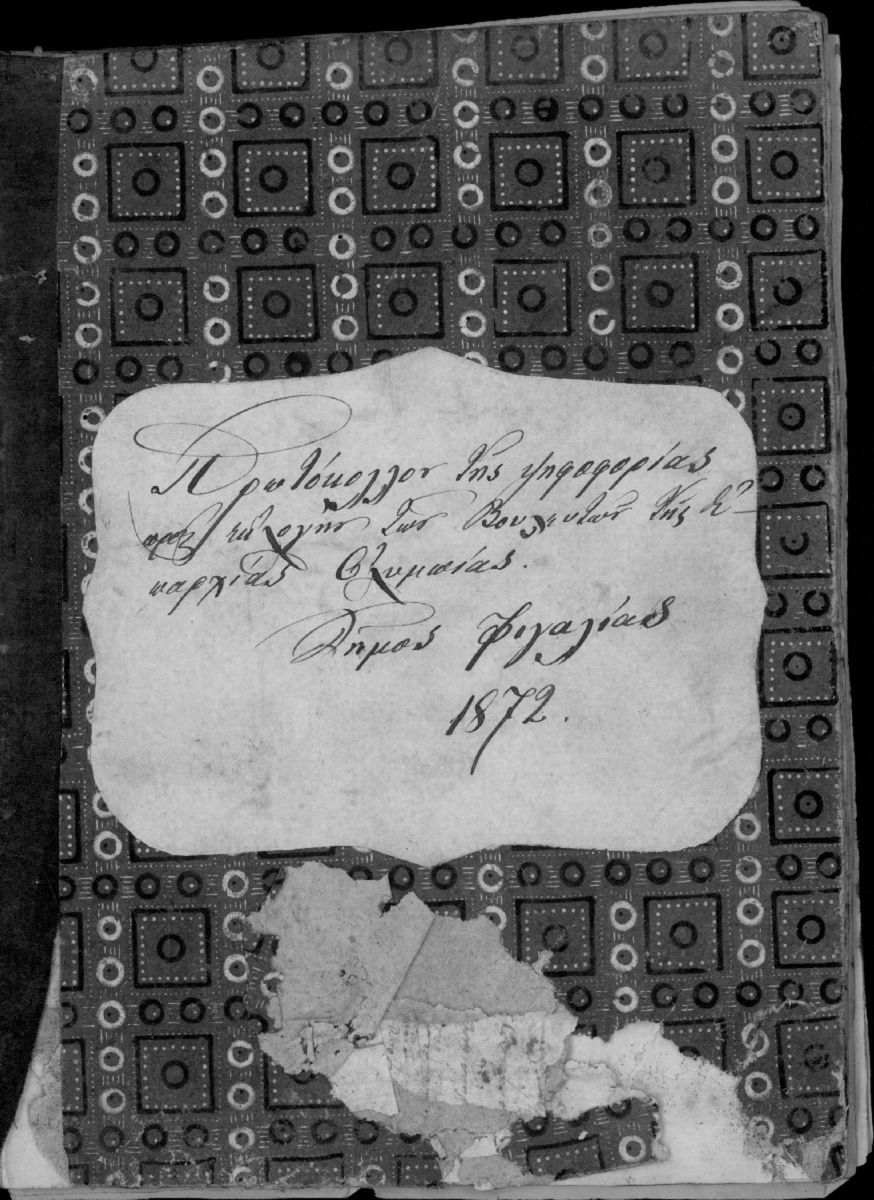 Πρωτόκολλον τῆς ψηφοφορίας
πρὸς ἐκλογὴν τῶν Βουλευτῶν τῆς Ἐ-
παρχίας Ὀλυμπίας.
Δῆμος Φιγαλίας
1872.